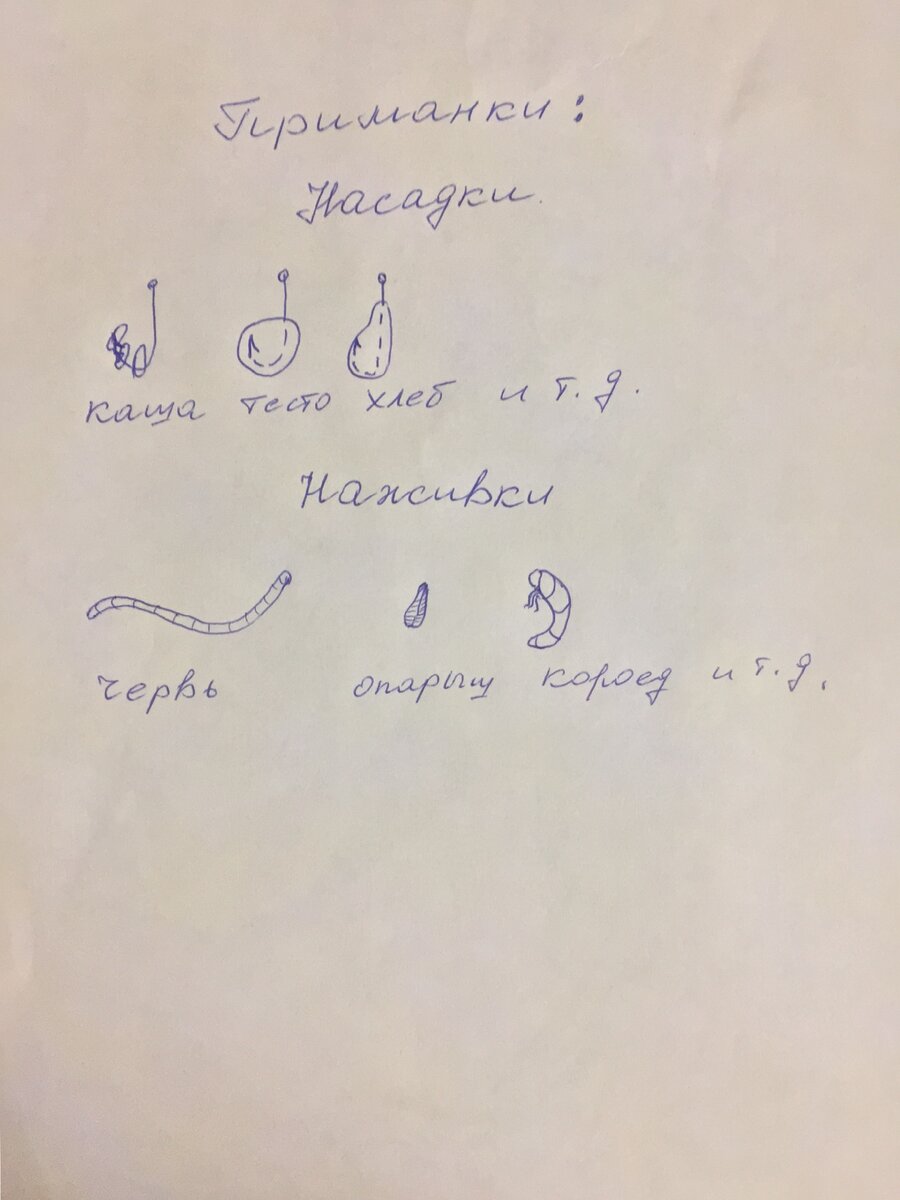 Приманки:
Насадки.
каша тесто хлеб и т.д.
Наживки
червь опарыш короед и т.д.